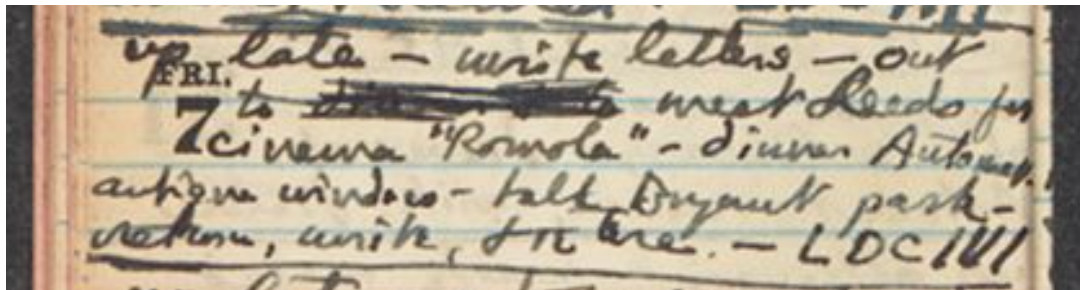 up late – write letters – out
FRI.
7 to meet Leeds for
cinema "Romola" – dinner Automat.
antique windows – talk Bryant park –
return, write, &c. – LDC IIII